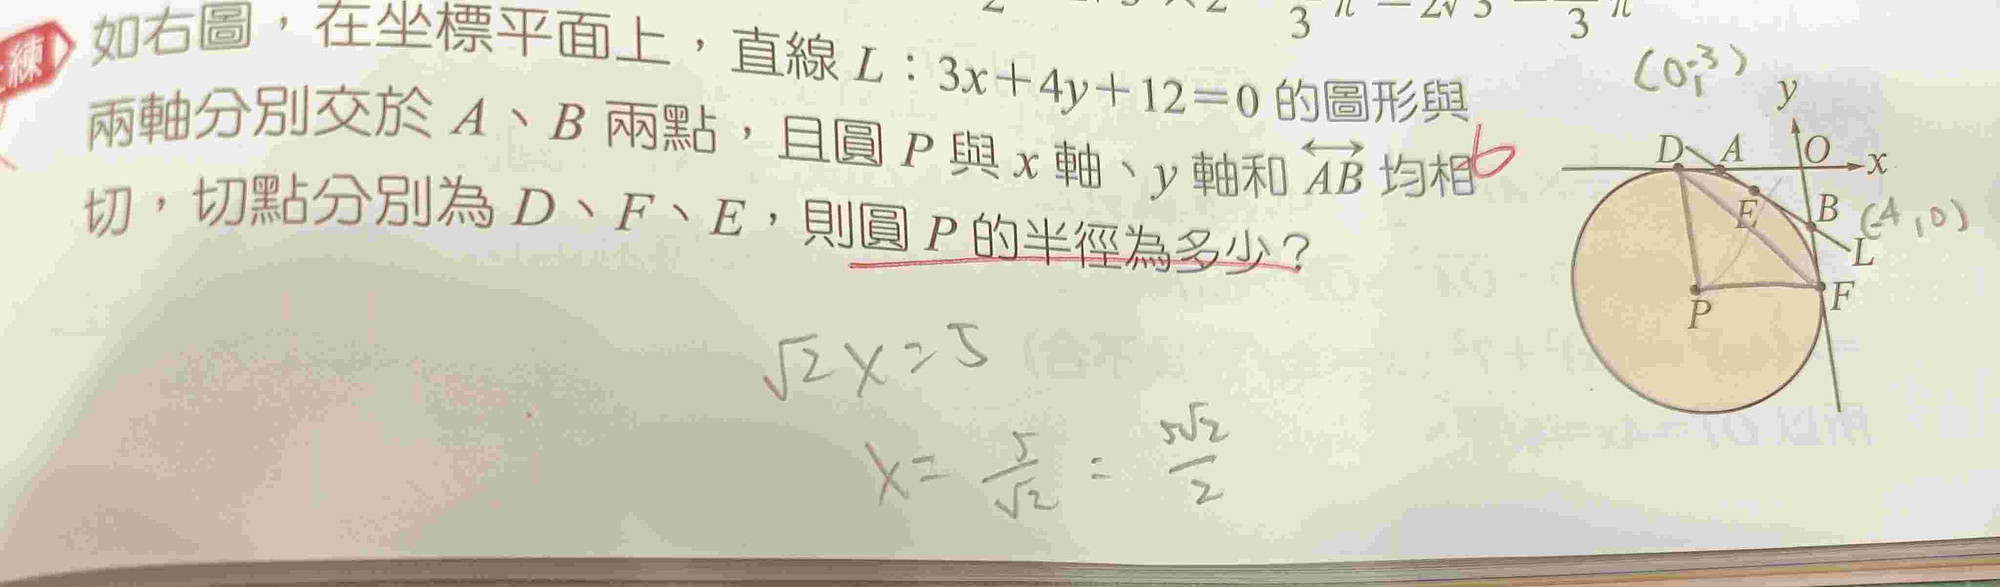 練 如右圖，在坐標平面上，直線 L：3x＋4y＋12＝0 的圖形與
兩軸分別交於 A、B 兩點，且圓 P 與 x 軸、y 軸和 AB 均相
切，切點分別為 D、F、E，則圓 P 的半徑為多少？
6
(0,-3)
y
D A O x
E B (-4,0)
L
P F
√2x=5
x=5/√2=5√2/2